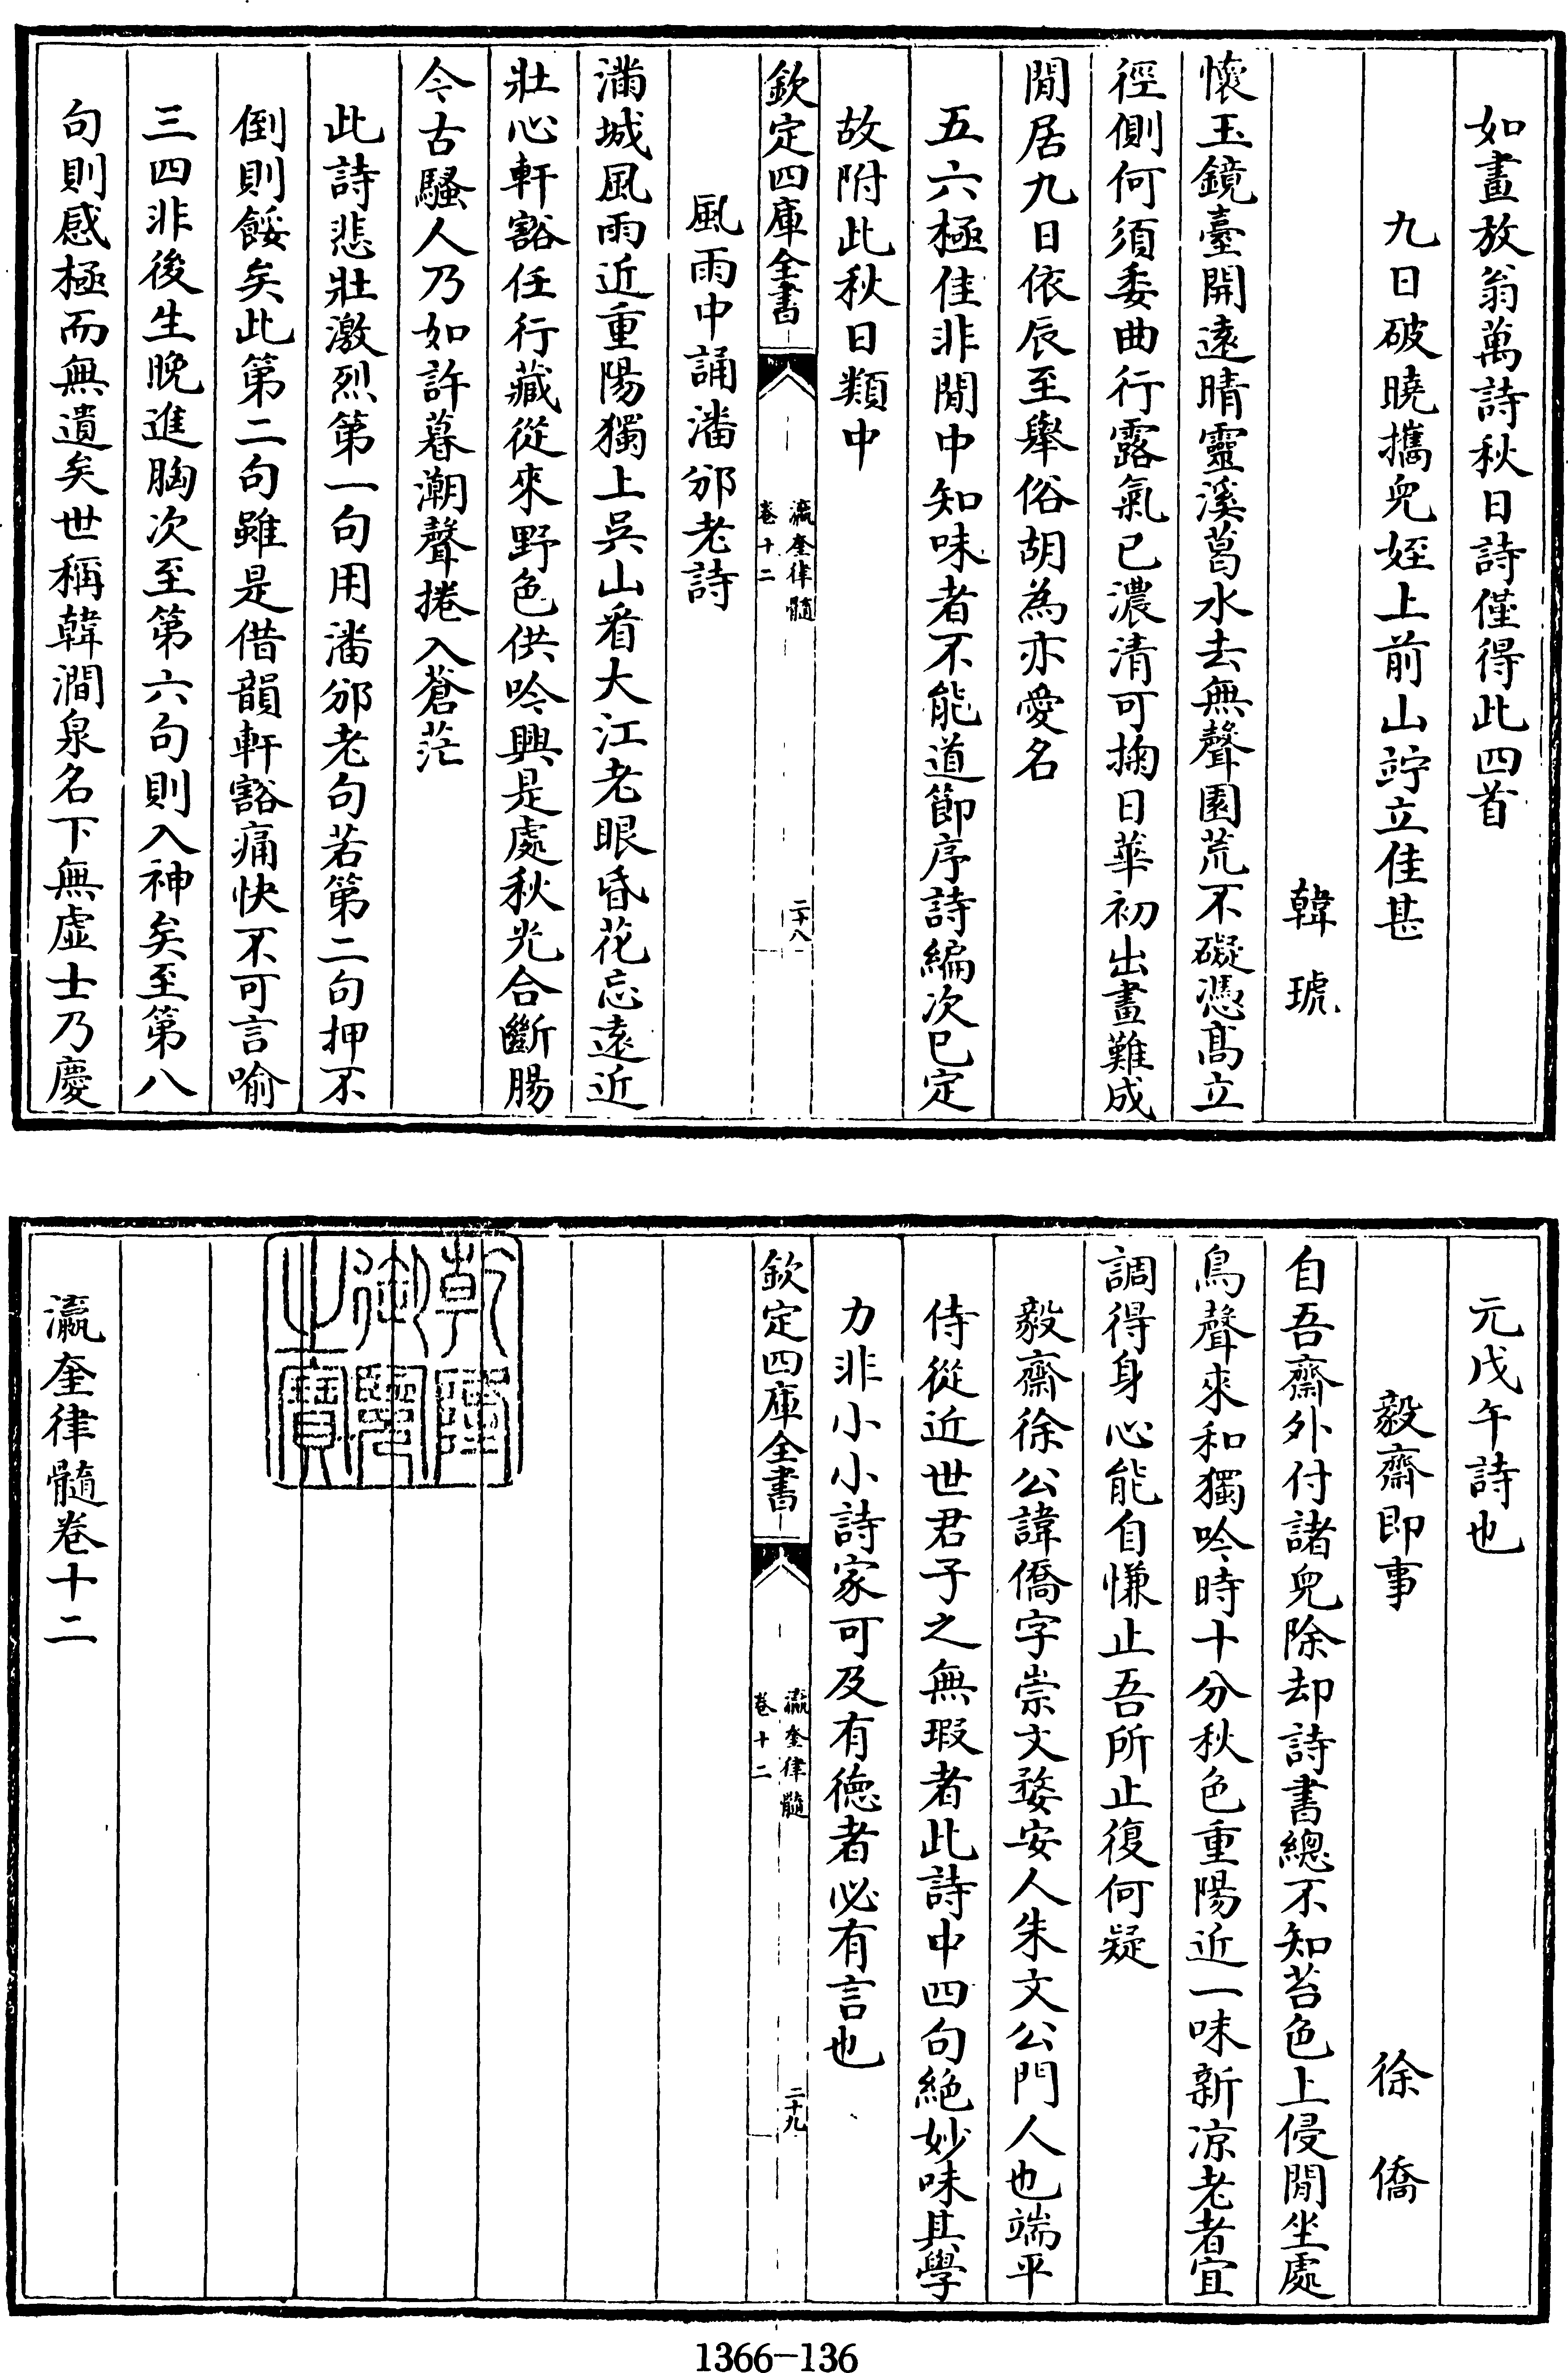 如畫放翁萬詩秋日詩僅得此四首
九日破曉攜兒姪上前山竚立佳甚
韓琥
懷玉鏡臺開遠晴靈溪葛水去無聲園荒不礙憑髙立
徑側何須委曲行露氣已濃清可掬日華初出畫難成
閒居九日依辰至舉俗胡為亦愛名
五六極佳非閒中知味者不能道節序詩編次已定
故附此秋日類中
欽定四庫全書
瀛奎律髓
卷十二
二十八
風雨中誦潘邠老詩
滿城風雨近重陽獨上吳山看大江老眼昏花忘遠近
壯心軒豁任行藏從來野色供吟興是處秋光合斷腸
今古騷人乃如許暮潮聲捲入蒼茫
此詩悲壯激烈第一句用潘邠老句若第二句押不
倒則餒矣此第二句雖是借韻軒豁痛快不可言喻
三四非後生晚進胸次至第六句則入神矣至第八
句則感極而無遺矣世稱韓澗泉名下無虛士乃慶
元戊午詩也
毅齋即事
徐僑
自吾齋外付諸兒除却詩書總不知苔色上侵閒坐處
鳥聲來和獨吟時十分秋色重陽近一味新凉老者宜
調得身心能自慊止吾所止復何疑
毅齋徐公諱僑字崇文婺安人朱文公門人也端平
侍從近世君子之無瑕者此詩中四句絶妙味其學
力非小小詩家可及有徳者必有言也
欽定四庫全書
瀛奎律髓
卷十二
二十九
乾隆御覽之寶
瀛奎律髓卷十二
1366-136